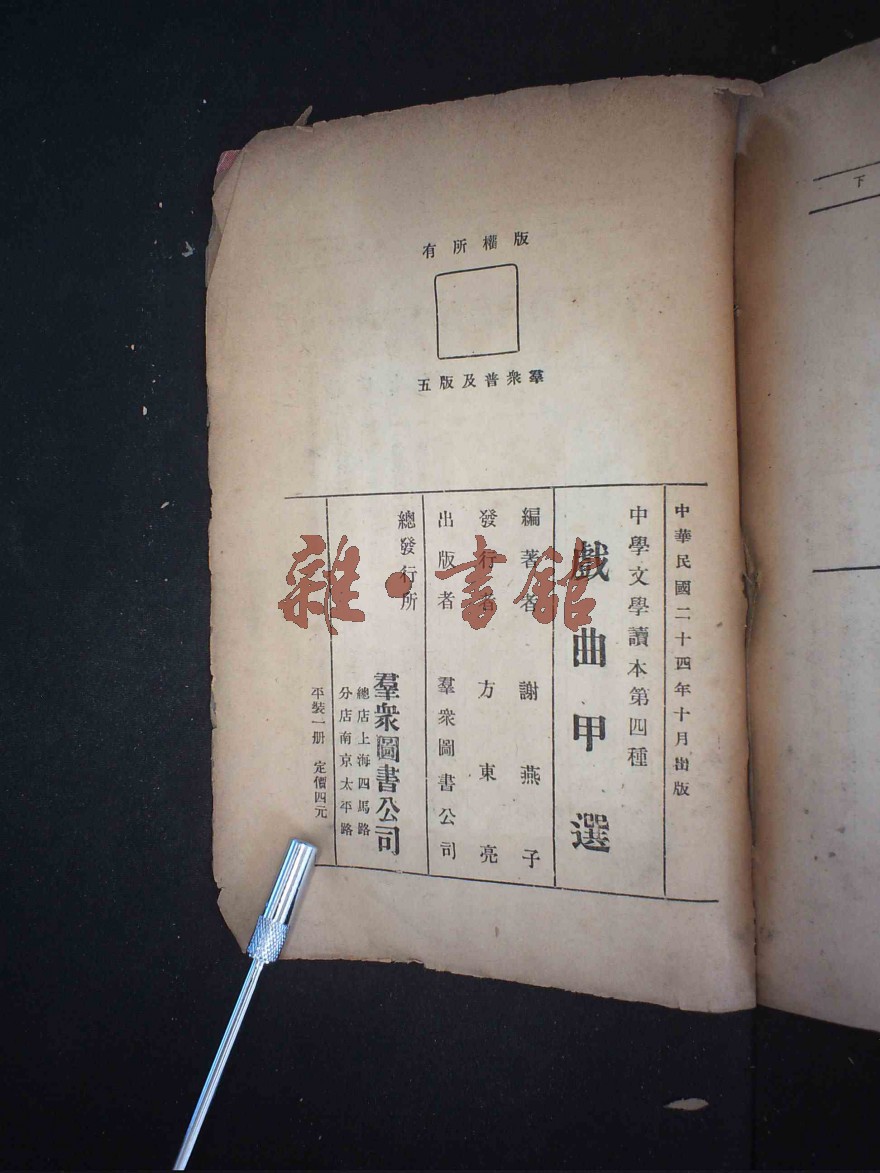 版權所有
羣衆普及版五
中華民國二十四年十月出版
中學文學讀本第四種
戲曲甲選
編著者 謝燕子
發行者 方東亮
出版者 羣衆圖書公司
總發行所 羣衆圖書公司
總店上海四馬路
分店南京太平路
平裝一册 定價四元
雜·書舘
下